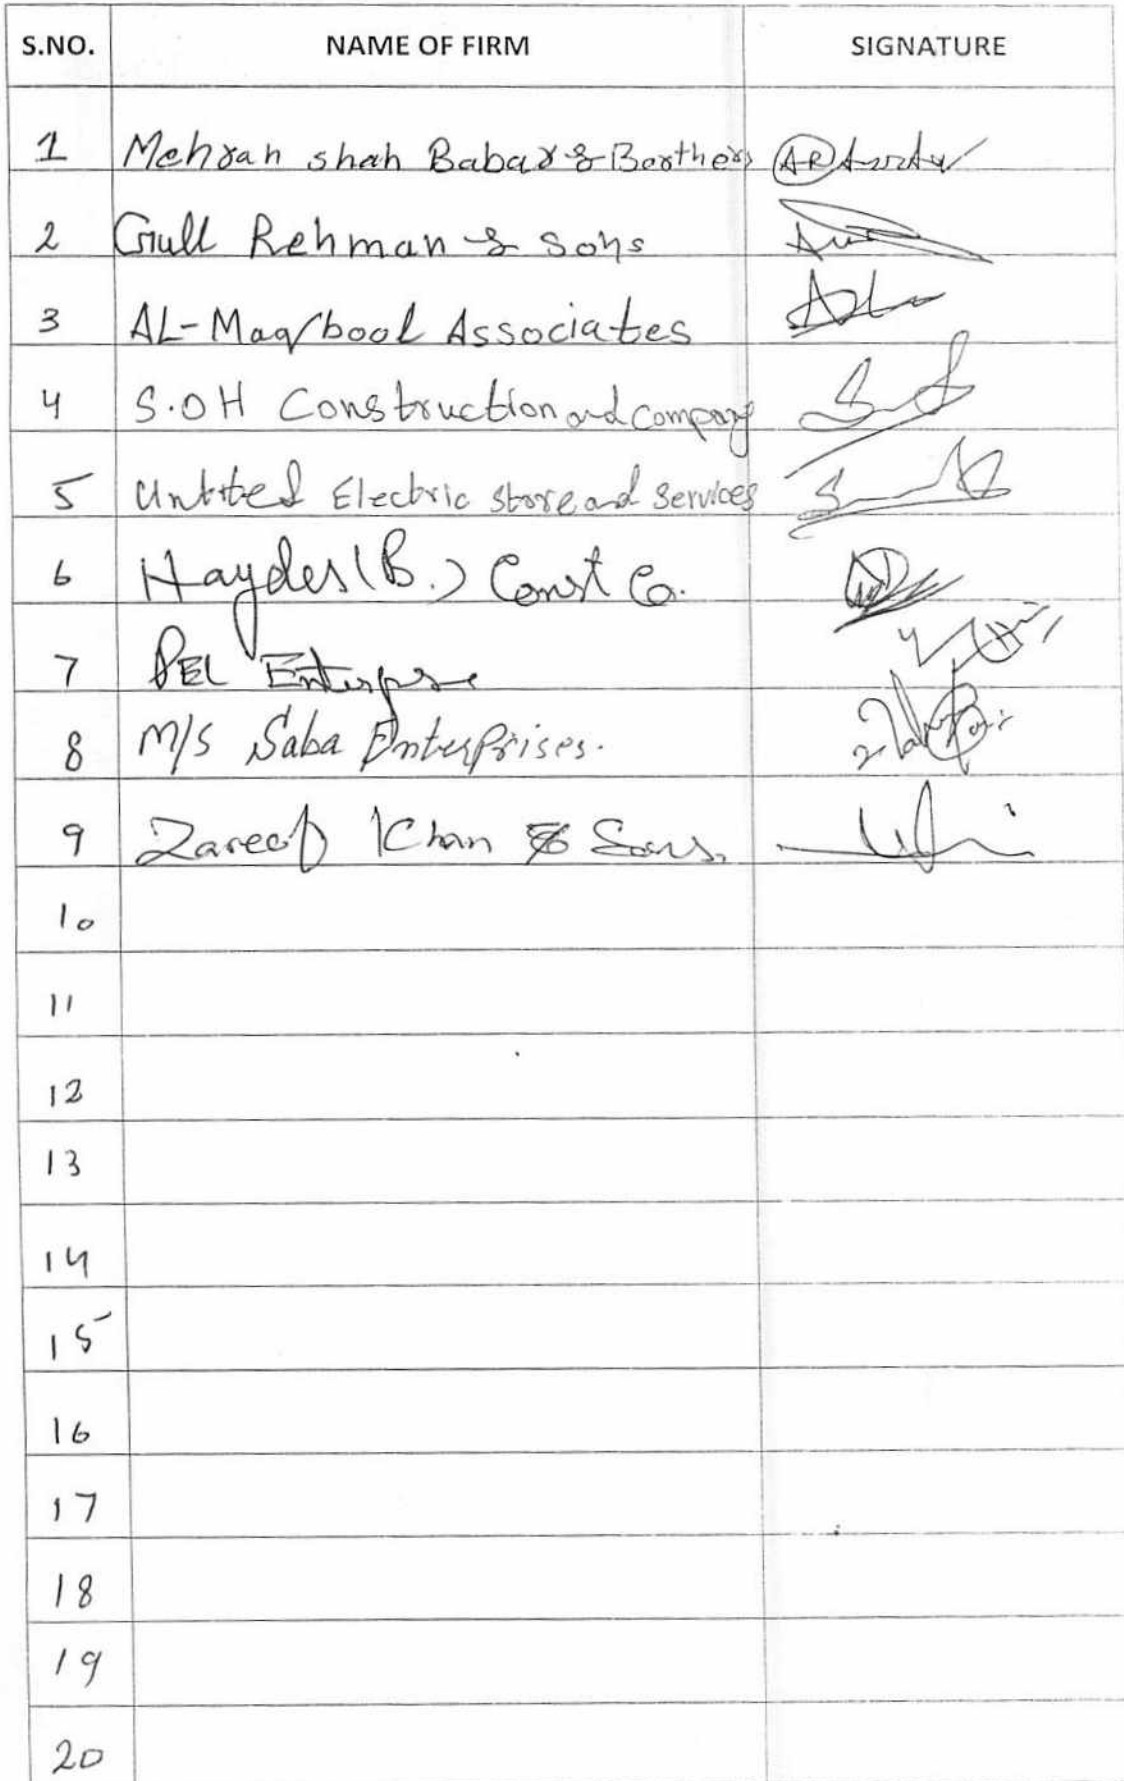 S.NO. NAME OF FIRM SIGNATURE
1 Mehran shah Babar & Borthers
2 Gull Rehman & Sons
3 AL-Maqbool Associates
4 S.OH Construction and company
5 Untited Electric store and Services
6 Hayder (B.) Const Co.
7 PEL Enterpse
8 M/S Saba Enterprises.
9 Zareef Khan & Sons.
10
11
12
13
14
15
16
17
18
19
20